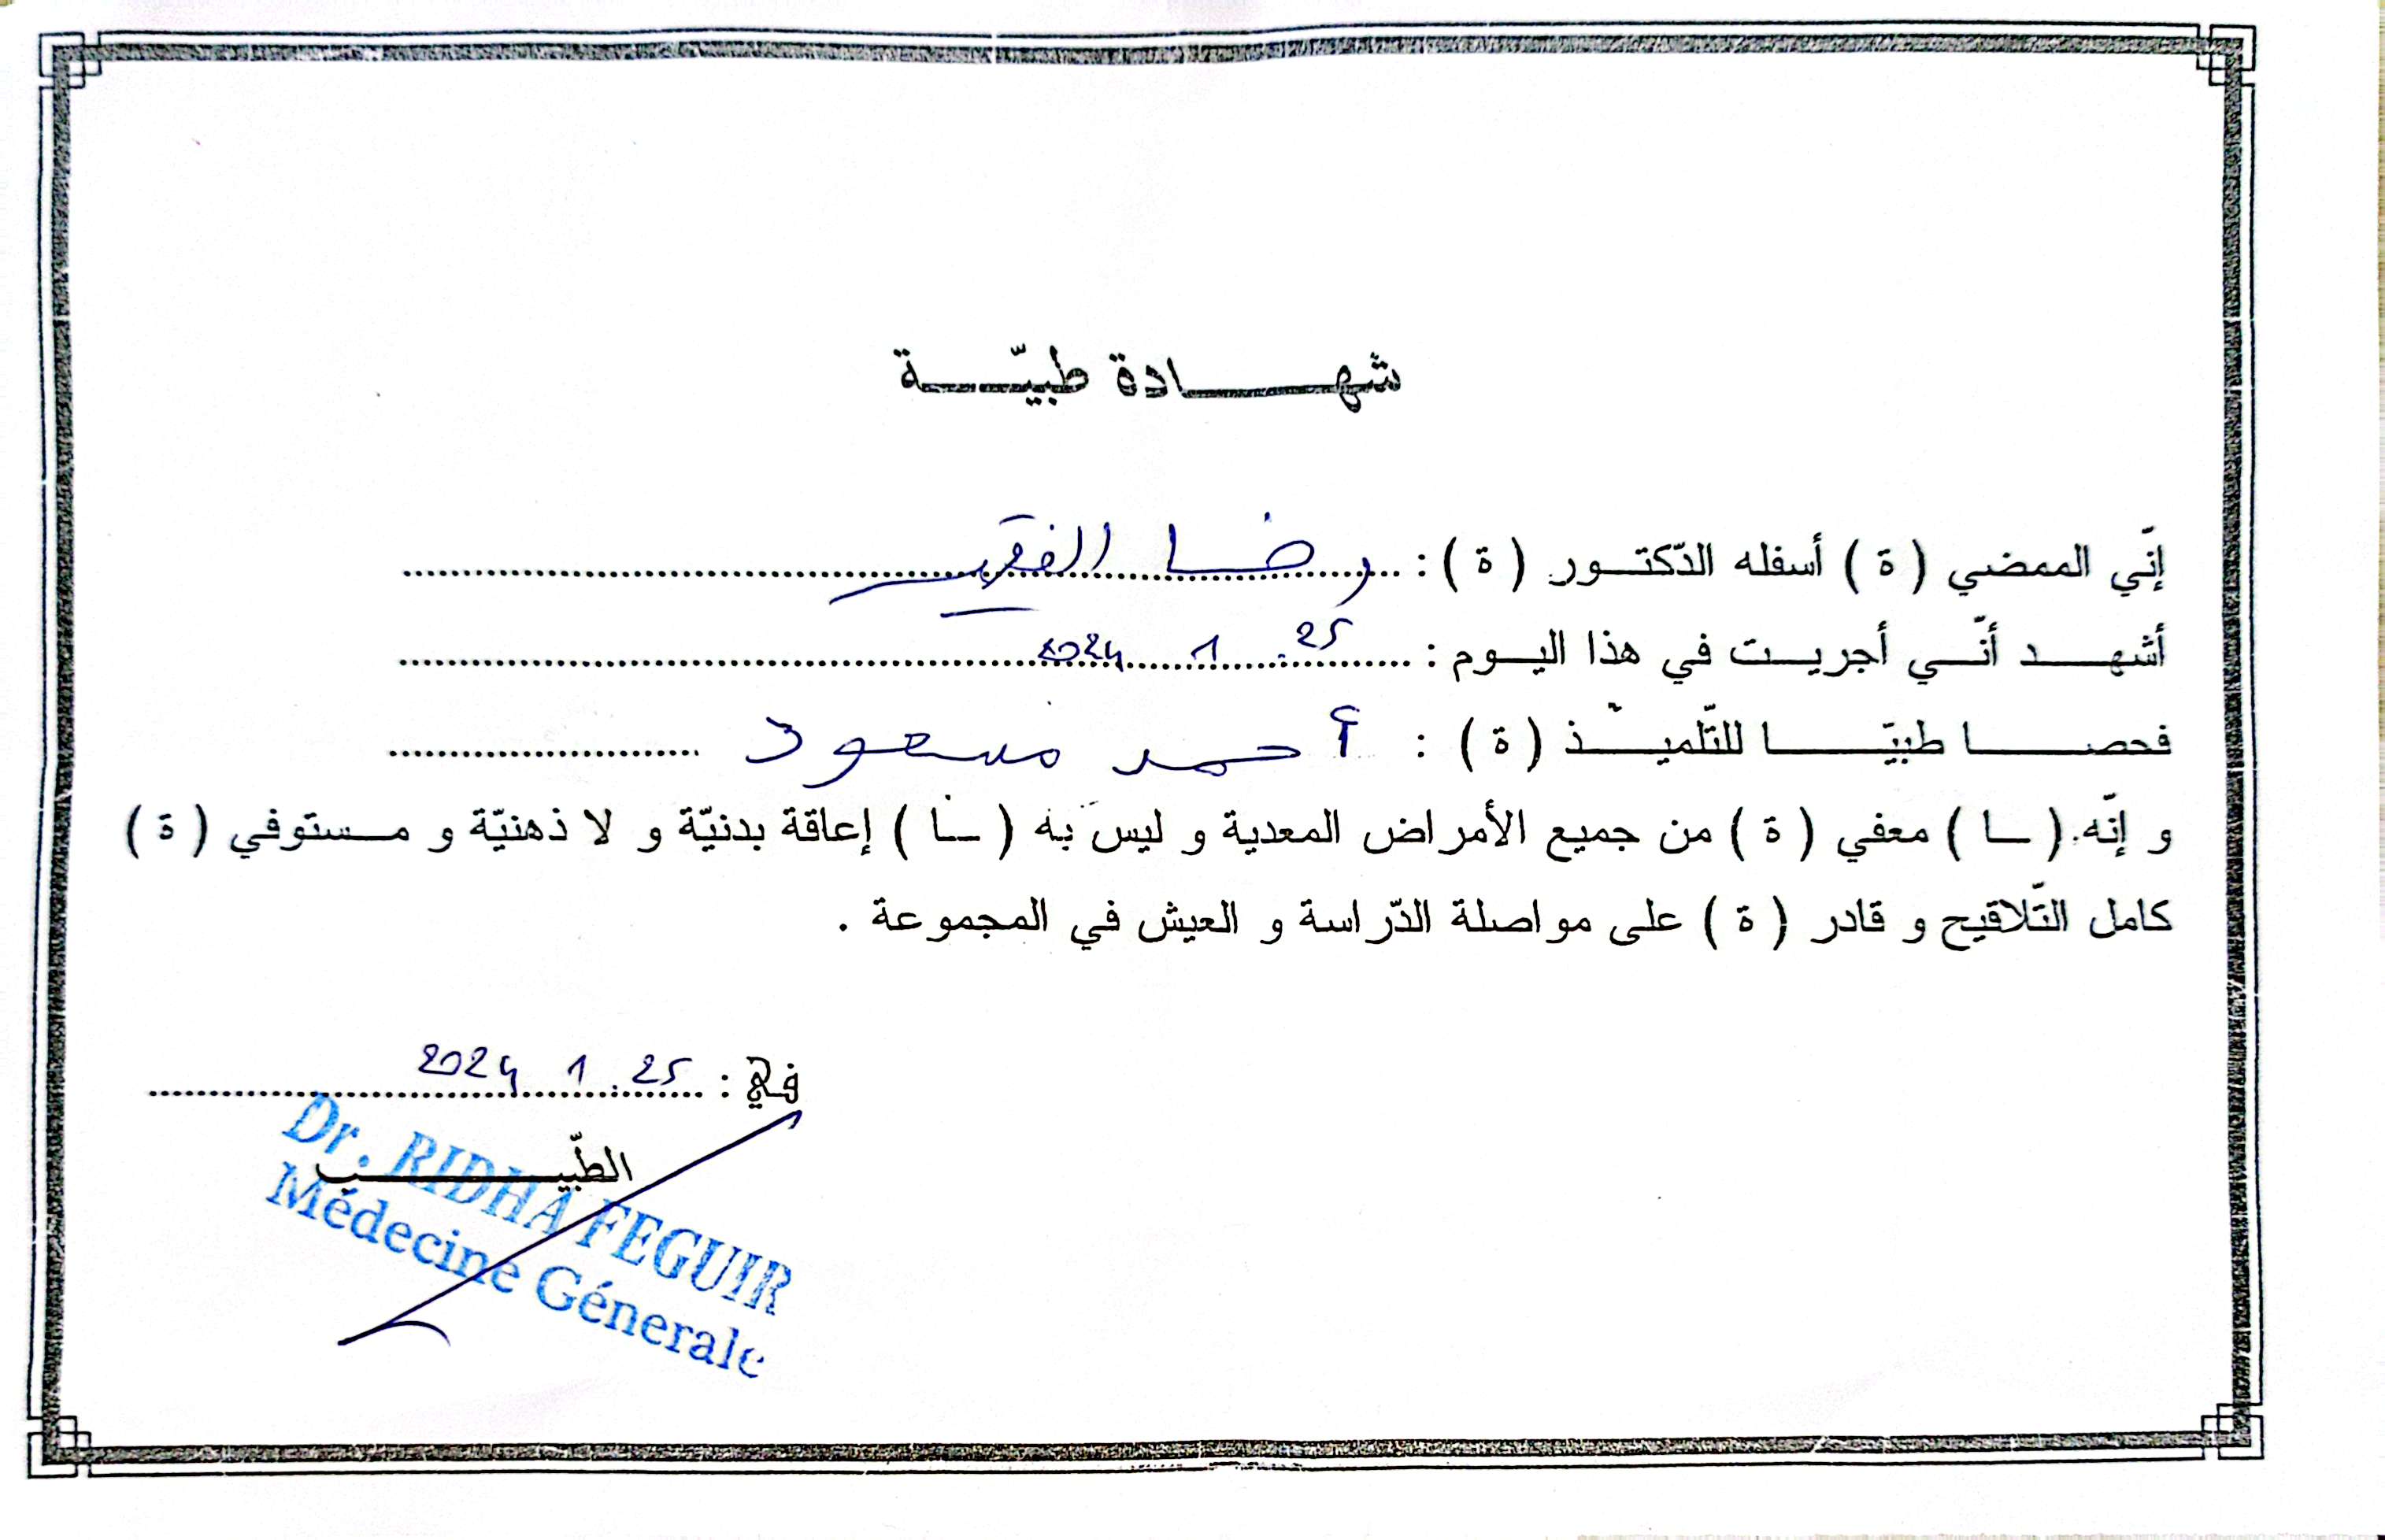 شهادة طبيّة
إنّي الممضي ( ة ) أسفله الدّكتور ( ة ) : رضا الفقير
أشهد أنّي أجريت في هذا اليوم : 25 . 1 2024
فحصا طبيّا للتّلميذ ( ة ) : أحمد مسعود
و إنّه ( ـا ) معفي ( ة ) من جميع الأمراض المعدية و ليس به ( ـا ) إعاقة بدنيّة و لا ذهنيّة و مستوفي ( ة )
كامل التّلاقيح و قادر ( ة ) على مواصلة الدّراسة و العيش في المجموعة .
في : 25 . 1 2024
الطّبيب
Dr. RIDHA FEGUIR
Médecine Génerale